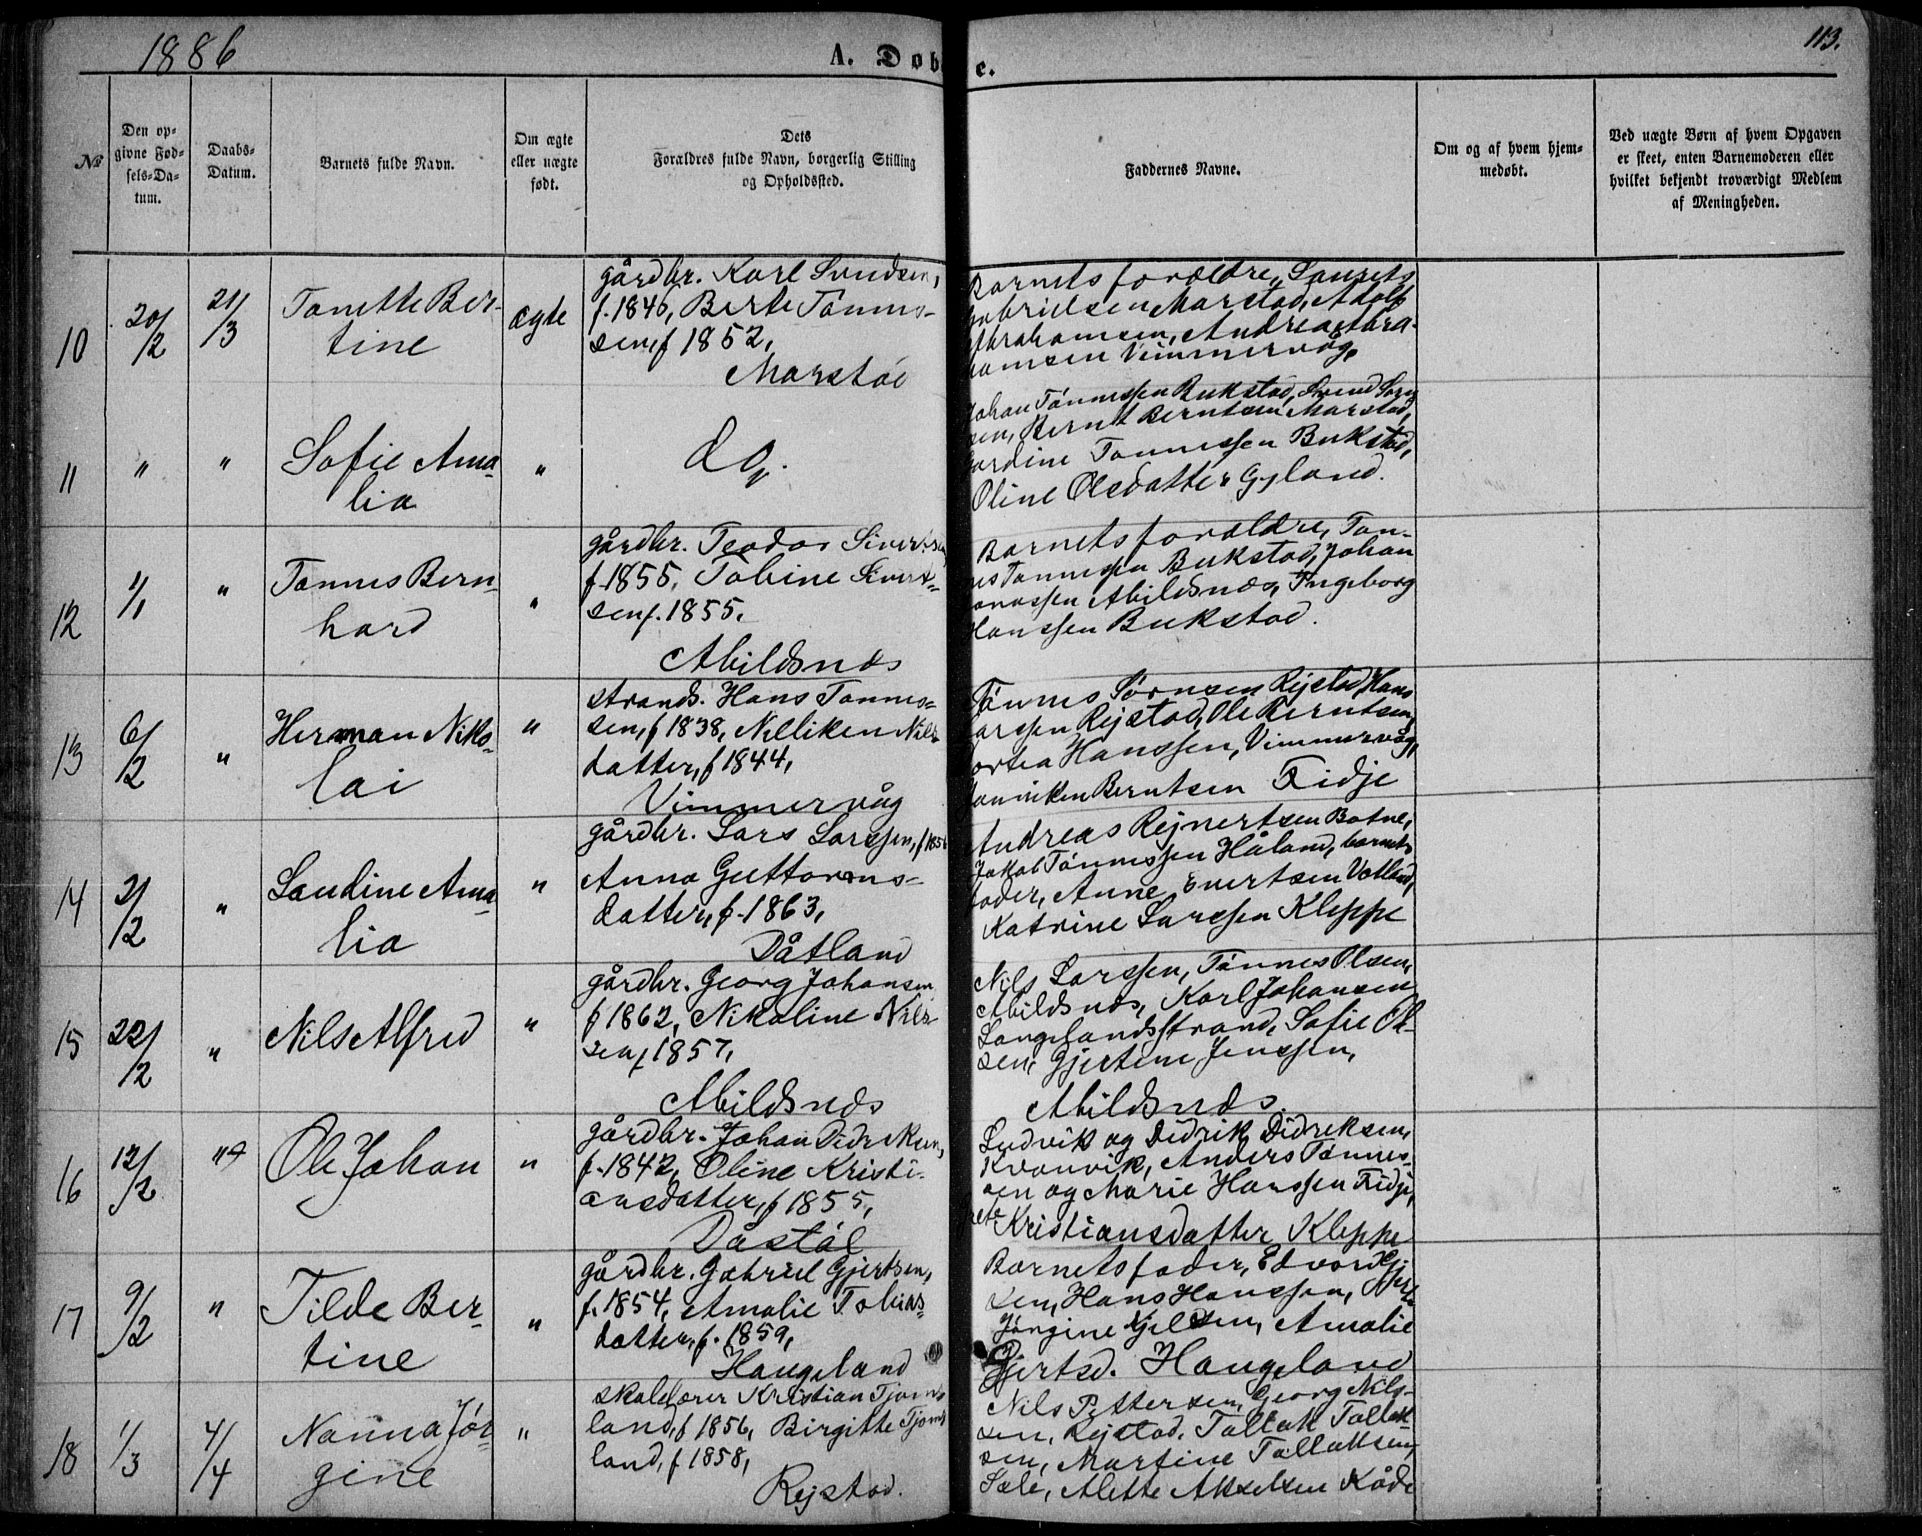 1886
A. Døbte.
113.
No
Den opgivne Fødsels-Datum.
Daabs-Datum.
Barnets fulde Navn.
Om ægte eller uægte født.
Dets Forældres fulde Navn, borgerlig Stilling og Opholdssted.
Faddernes Navne.
Om og af hvem hjemmedøbt.
Ved uægte Børn af hvem Opgaven er skeet, enten Barnemoderen eller hvilket bekjendt troværdigt Medlem af Meningheden.
10 20/2 21/3 Tanette Ber-
tine
ægte
gårdbr. Karl Svndsen,
f. 1846, Berte Tønnes-
sen, f 1852,
Marstøl
Barnets forældre, Laurets
Gabrielsen Marstad, Adolf
Abrahamsen, Andrea Abra-
hamsen Vimmervåg,
11 " " Sofie Ama-
lia
"
do,.
Johan Tønnessen Bukstad, Svend
sen, Bernt Berntsen Marstad,
Gardine Tønnessen Bukstad,
Oline Olsdatter Gyland.
12 1/1 " Tønnes Bern-
hard
"
gårdbr. Teodor Sivertsen
f. 1855, Tobine Sivert-
sen f. 1855,
Abildsnæs
Barnets forældre, Tøn-
nes Tønnessen Bukstad, Johan
Abildsnæs, Ingeborg
Hanssen Bukstad.
13 6/2 " Herman Niko-
lai
"
strands. Hans Tønnes-
sen, f 1838, Nilliken Nils-
datter, f 1844,
Vimmervåg
Tønnes Sørnsen Rejstad, Hans
Larssen Rejstad, Ole Berntsen,
Hanssen, Vimmervåg,
Berntsen Fidje
14 2/2 " Laudine Ama-
lia
"
gårdbr. Lars Larssen, f 1856
Anna Guttorms-
datter, f. 1863,
Dåtland
Andreas Rejnertsen Botne,
Jakob Tønnessen Håland, barnets
fader, Anne Evertsen Vatland,
Katrine Larssen Kleppe
15 22/2 " Nils Alfred
"
gårdbr. Georg Johansen
f 1862, Nikoline Nils-
sen, 1857,
Abildsnæs
Nils Larssen, Tønnes Olsen,
Abildsnæs, Karl Johansen
Langelandsstrand, Sofie Ol-
sen, Gjertine Jenssen,
Abildsnæs
16 12/2 " Ole Johan
"
gårdbr. Johan Didriksen,
f. 1842, Oline Kristi-
ansdatter, f 1855,
Dåstøl
Ludvik og Didrik Didreksen,
Kvanvik, Anders Tønnes-
sen og Marie Hanssen Fidje,
Kristiansdatter Kleppe
17 9/2 " Tilde Ber-
tine
"
gårdbr. Gabriel Gjertsen,
f. 1854, Amalie Tobias-
datter, f. 1859,
Haugeland
Barnets fader, Edvard
sen, Hans Hanssen,
Jørgine Amalie
Gjertsd. Haugeland
18 1/3 4/4 Nanna Jør-
gine
"
skolelærer Kristian Tjøms-
land, f 1856, Birgitte Tjøms-
land, f 1858,
Rejstad.
Nils Pettersen, Georg Nils-
sen, Rejstad, Tallak Tallak-
sen, Martine Tallaksen,
Sæle, Alette Akselsen Kåde